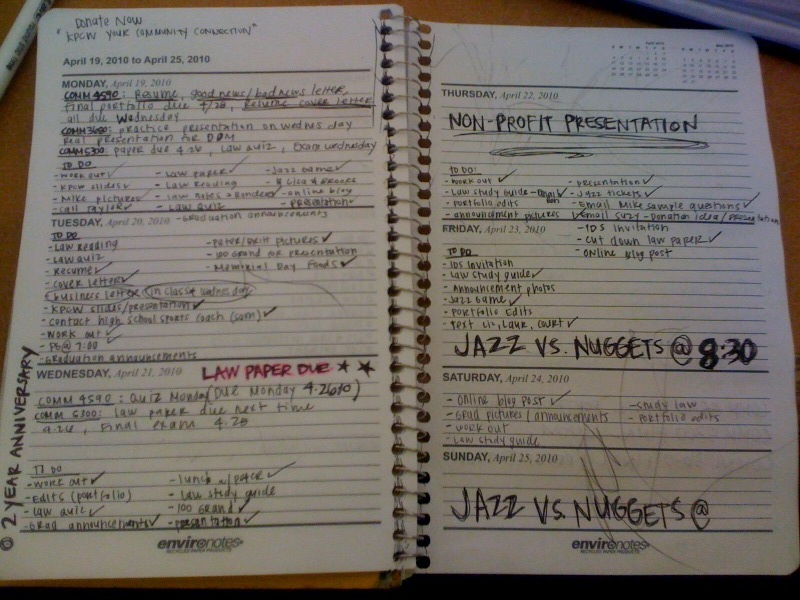 Donate Now
"KPCW YOUR COMMUNITY CONNECTION"
April 19, 2010 to April 25, 2010
MONDAY, April 19, 2010
COMM 4590: Resume, good news/bad news letter,
final portfolio due 4/28, resume cover letter
all due Wednesday
COMM 3680: practice presentation on wednesday
real presentation for DDM
COMM 5300: paper due 4.26, Law quiz, Exam wednesday
TO DO
- work out ✓
- KPCW slides ✓
- Mike pictures ✓
- call Taylor ✓
- law paper ✓
- law reading
- law notes
- law quiz
- Jazz Game ✓
- online blog
- presentation
- graduation announcements
TUESDAY, April 20, 2010
TO DO
- Law reading
- Law quiz
- Resume ✓
- cover letter ✓
- business letter (in class wednesday)
- KPCW slides/presentation ✓
- contact high school sports coach (sam) ✓
- work out ✓
- PS@ 7:00
- graduation announcements
- Peter/Britt pictures ✓
- 100 Grand or presentation
- Memorial Day Foods ✓
WEDNESDAY, April 21, 2010 LAW PAPER DUE ★ ★
COMM 4590: Quiz Monday (Due Monday 4.26.10)
COMM 5300: law paper due next time
4.26, Final exam 4.28
TO DO
- work out ✓
- Edits (portfolio)
- Law quiz ✓
- Grad announcements ✓
- lunch w/ peter ✓
- Law study guide
- 100 Grand ✓
- presentation ✓
☺ 2 YEAR ANNIVERSARY
environotes
RECYCLED PAPER PRODUCTS
THURSDAY, April 22, 2010
NON-PROFIT PRESENTATION
TO DO:
- work out ✓
- Law study guide - Email
- portfolio edits
- announcement pictures
- presentation ✓
- Jazz tickets ✓
- Email Mike sample questions ✓
- Email suzy - Donation idea/presentation
FRIDAY, April 23, 2010
TO DO
- IDS invitation
- Law study guide ✓
- announcement photos
- Jazz game ✓
- portfolio Edits
- IDS invitation
- cut down law paper ✓
- online blog post
JAZZ VS. NUGGETS @ 8:30
SATURDAY, April 24, 2010
- online blog post ✓
- Grad pictures / announcements
- work out
- Law study guide
- study law
- portfolio edits
SUNDAY, April 25, 2010
JAZZ VS. NUGGETS @
environotes
RECYCLED PAPER PRODUCTS